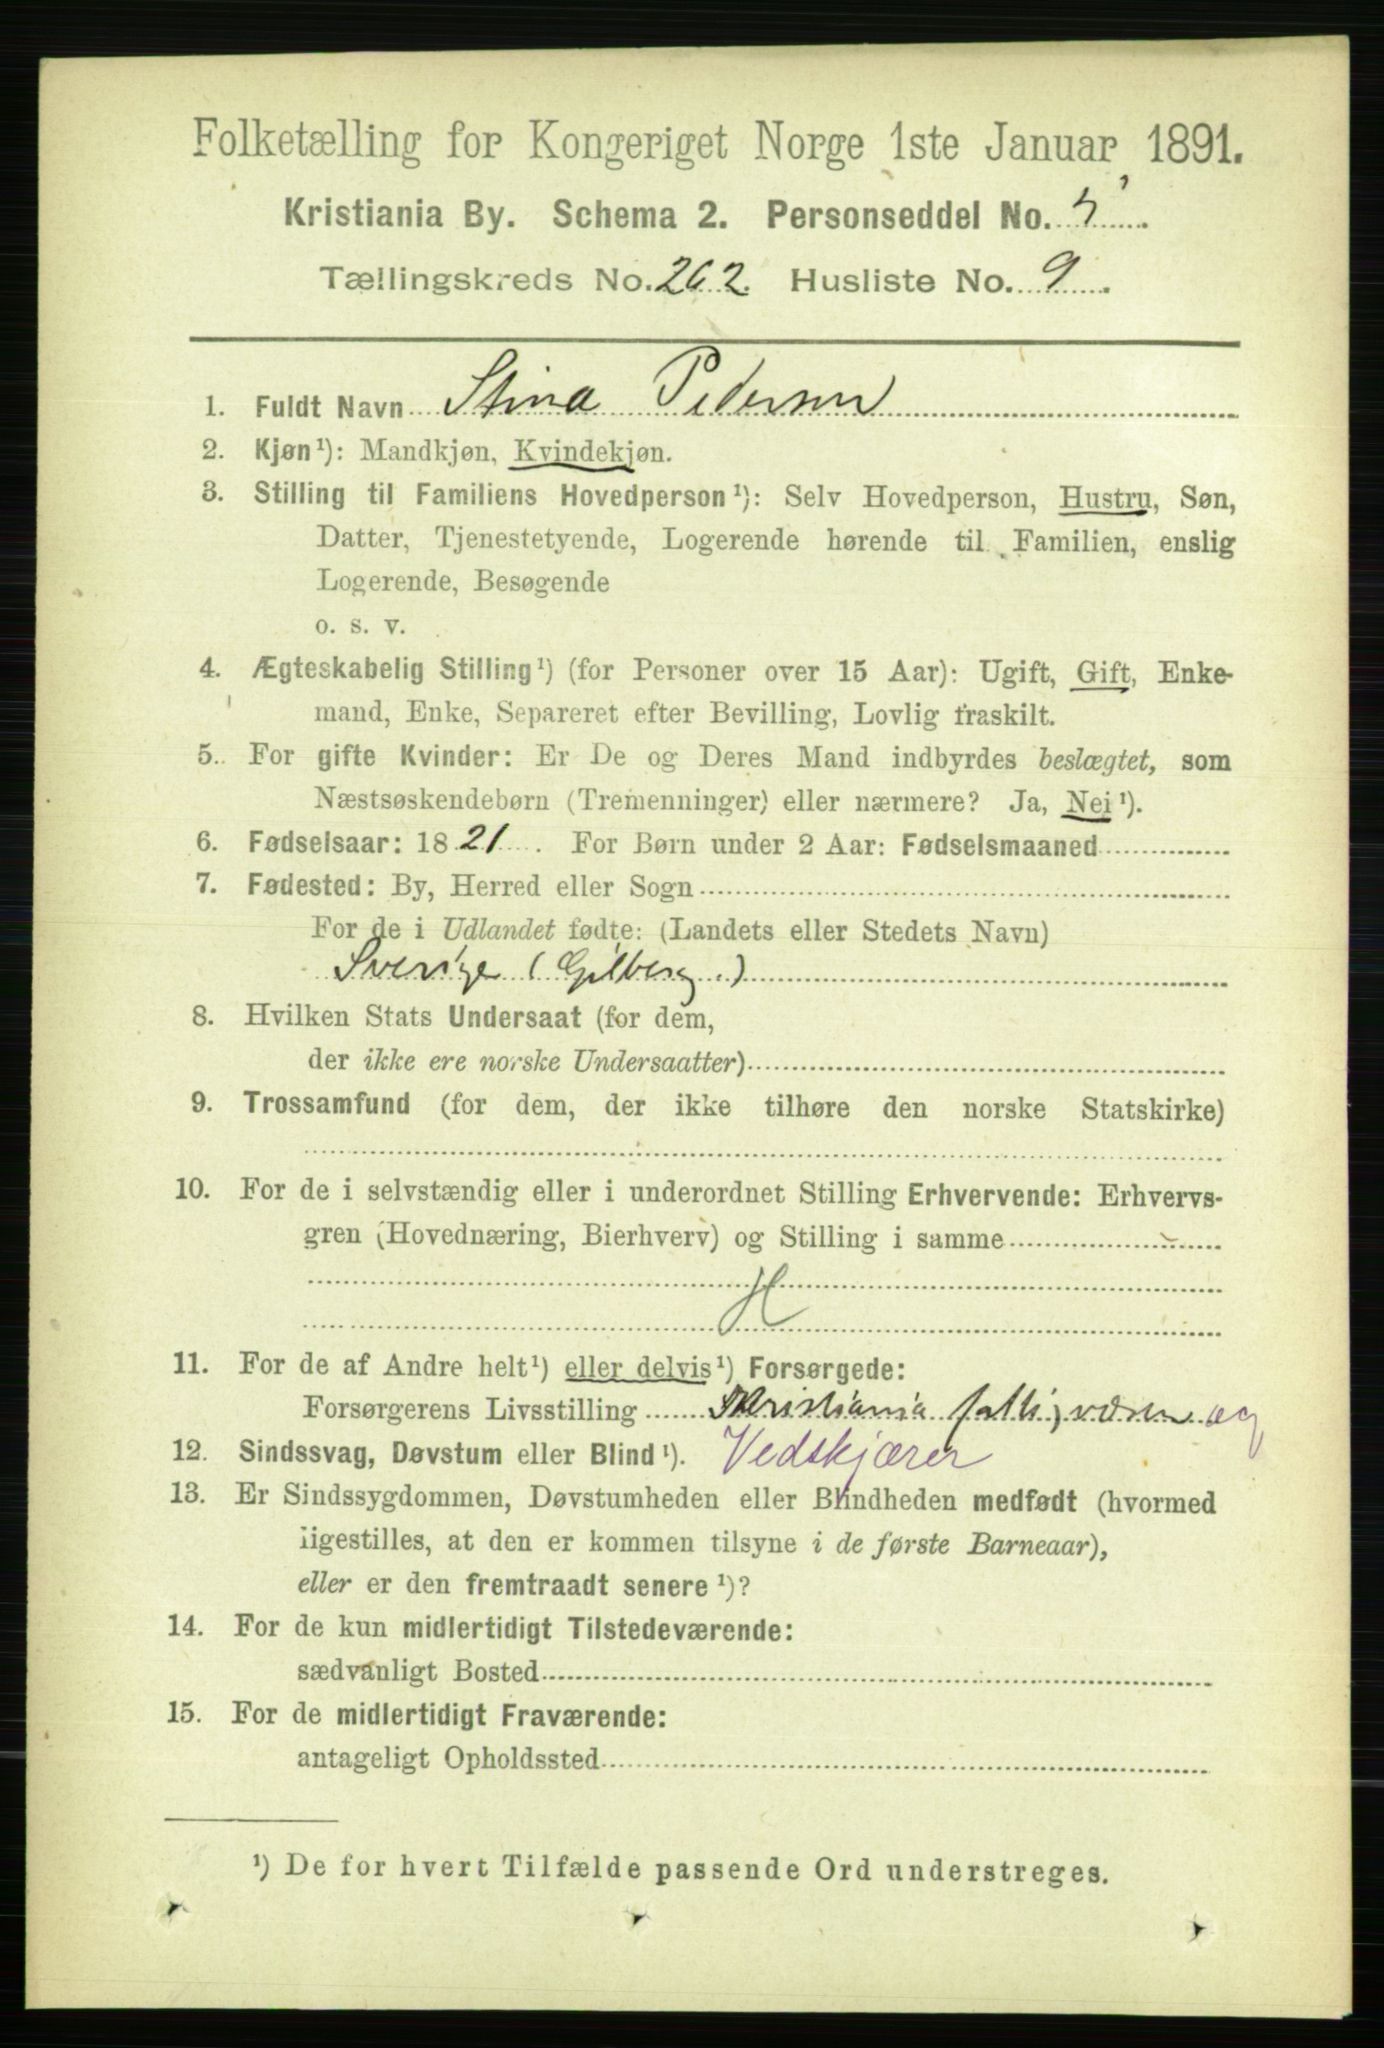 Folketælling for Kongeriget Norge 1ste Januar 1891.
Kristiania By. Schema 2. Personseddel No. 5
Tællingskreds No. 262. Husliste No. 9.
1. Fuldt Navn Stina Pedersen
2. Kjøn¹): Mandkjøn, Kvindekjøn.
3. Stilling til Familiens Hovedperson¹): Selv Hovedperson, Hustru, Søn,
Datter, Tjenestetyende, Logerende hørende til Familien, enslig
Logerende, Besøgende
o. s. v.
4. Ægteskabelig Stilling¹) (for Personer over 15 Aar): Ugift, Gift, Enke-
mand, Enke, Separeret efter Bevilling, Lovlig fraskilt.
5. For gifte Kvinder: Er De og Deres Mand indbyrdes beslægtet, som
Næstsøskendebørn (Tremenninger) eller nærmere? Ja, Nei¹).
6. Fødselsaar: 1821. For Børn under 2 Aar: Fødselsmaaned
7. Fødested: By, Herred eller Sogn
For de i Udlandet fødte: (Landets eller Stedets Navn)
Sverige (Gilberg.)
8. Hvilken Stats Undersaat (for dem,
der ikke ere norske Undersaatter)
9. Trossamfund (for dem, der ikke tilhøre den norske Statskirke)
10. For de i selvstændig eller i underordnet Stilling Erhvervende: Erhvervs-
gren (Hovednæring, Bierhverv) og Stilling i samme
H
11. For de af Andre helt¹) eller delvis¹) Forsørgede:
Forsørgerens Livsstilling Kristiania fattigvæsen og
12. Sindssvag, Døvstum eller Blind¹). Vedskjærer
13. Er Sindssygdommen, Døvstumheden eller Blindheden medfødt (hvormed
ligestilles, at den er kommen tilsyne i de første Barneaar),
eller er den fremtraadt senere¹)?
14. For de kun midlertidigt Tilstedeværende:
sædvanligt Bosted
15. For de midlertidigt Fraværende:
antageligt Opholdssted
¹) De for hvert Tilfælde passende Ord understreges.